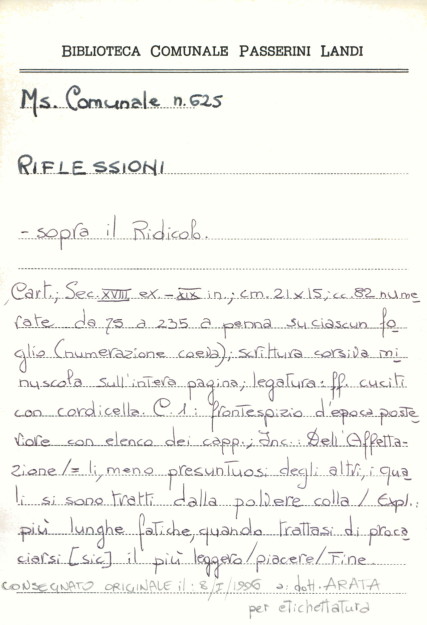 BIBLIOTECA COMUNALE PASSERINI LANDI
Ms. Comunale n. 625
RIFLESSIONI
- sopra il Ridicolo.
Cart.; Sec. XVIII ex. - XIX in.; cm. 21x15; cc. 82 nume
rate da 75 a 235 a penna su ciascun fo
glio (numerazione coeva); scrittura corsiva mi
nuscola sull'intera pagina; legatura: ff. cuciti
con cordicella. C. 1: frontespizio d'epoca poste
riore con elenco dei capp.; Inc.: Dell'Affetta-
zione /= li, meno presuntuosi degli altri, i qua
li si sono tratti dalla polvere colla / Expl.:
più lunghe fatiche, quando trattasi di proca
ciarsi [sic] il più leggero/piacere/Fine.
CONSEGNATO ORIGINALE il 8/I/1996 a dott. ARATA
per etichettatura